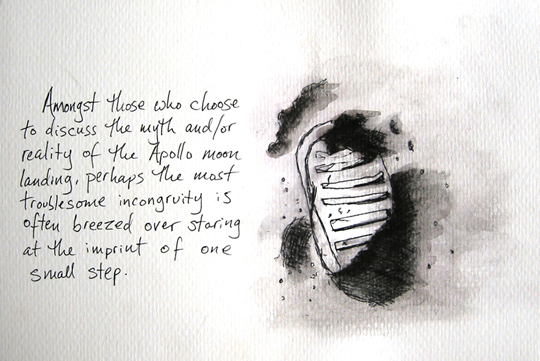 Amongst those who choose
to discuss the myth and/or
reality of the Apollo moon
landing, perhaps the most
troublesome incongruity is
often breezed over staring
at the imprint of one
small step.